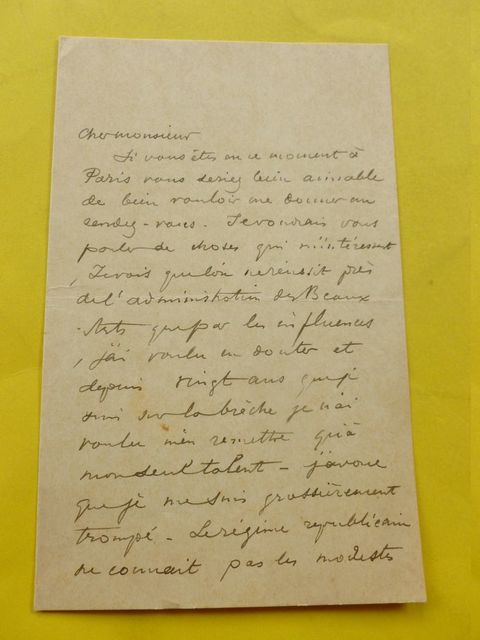 Cher monsieur
Si vous êtes en ce moment à
Paris vous seriez bien aimable
de bien vouloir me donner un
rendez-vous. Je voudrais vous
parler de choses qui m'intéressent
, Je vois que l'on ne réussit près
de l'administration des Beaux
-Arts que par les influences
, j'ai voulu en douter et
depuis vingt ans que je
suis sur la brèche je n'ai
voulu m'en remettre qu'à
mon seul talent - j'avoue
que je me suis grossièrement
trompé - Le régime republicain
ne connait pas les modestes